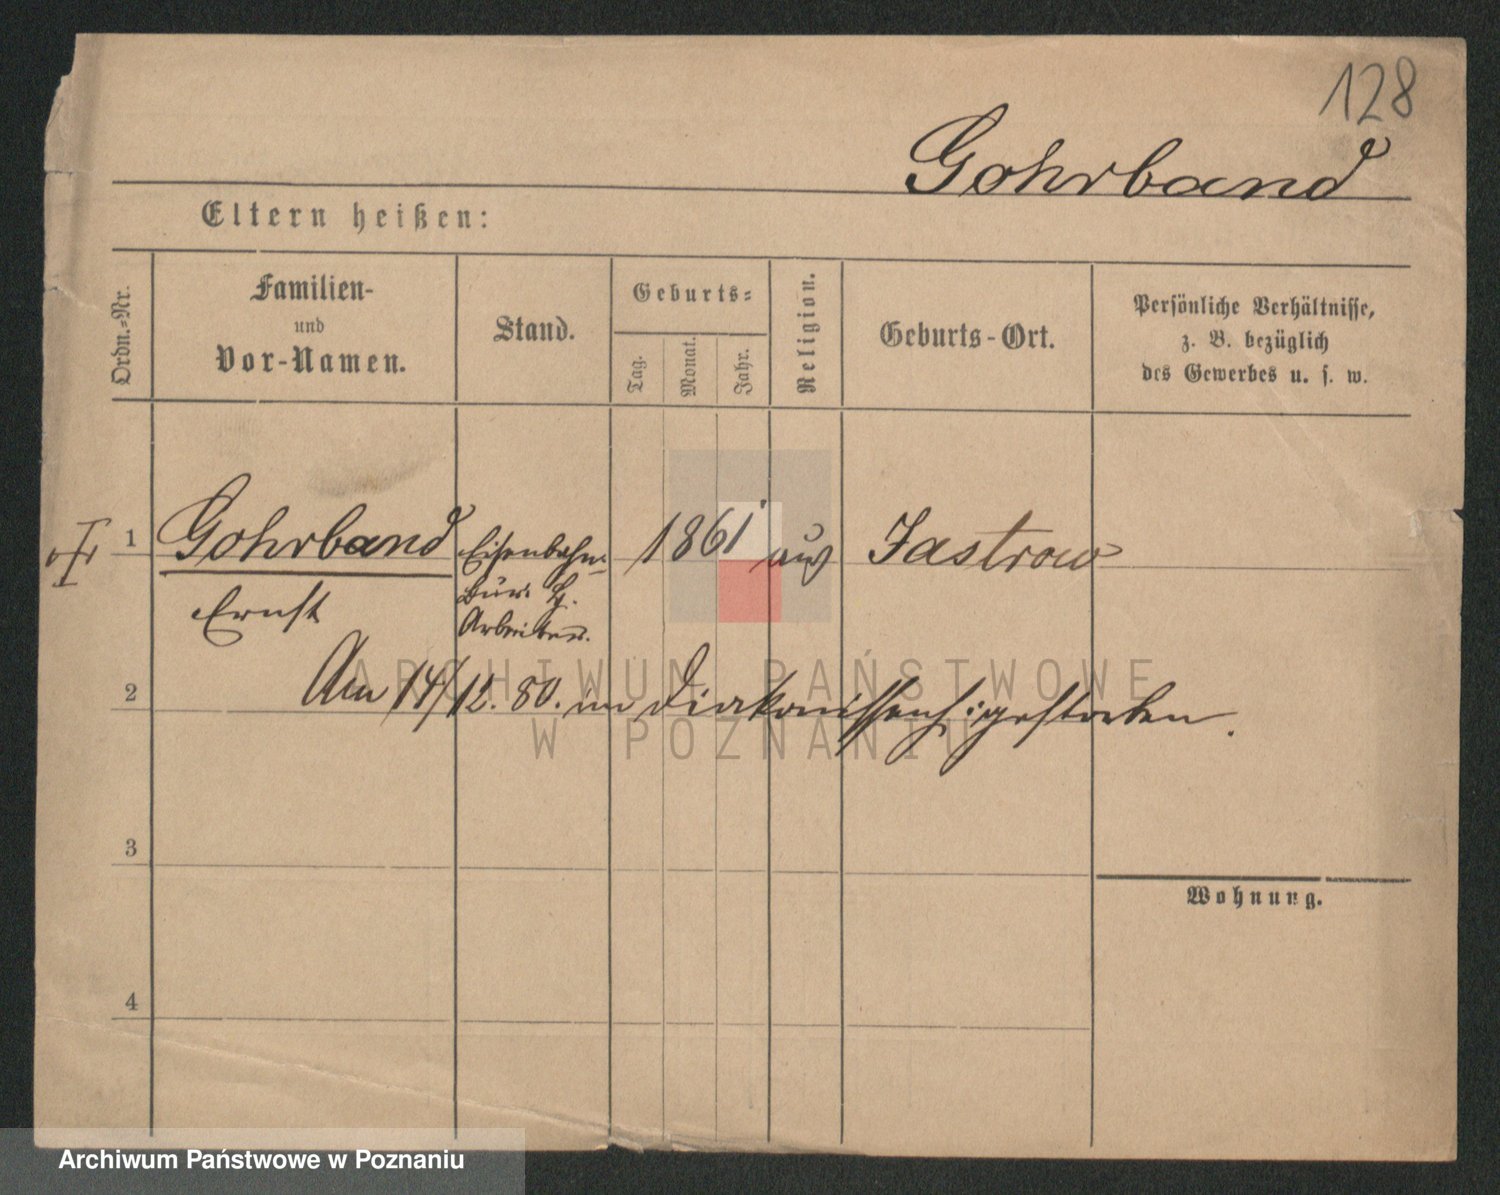 128
Gohrband
Eltern heißen:
Ordn.-Nr.
Familien-
und
Vor-Namen.
Stand.
Geburts-
Tag.
Monat.
Jahr.
Religion.
Geburts-Ort.
Persönliche Verhältnisse,
z. B. bezüglich
des Gewerbes u. s. w.
1 Gohrband Eisenbahn- 1861 Jastrow
Ernst
Arbeiter.
2 Am 14/12. 80. im Diakonissenh. gestorben.
ARCHIWUM PAŃSTWOWE
W POZNANIU
3
Wohnung.
4
Archiwum Państwowe w Poznaniu